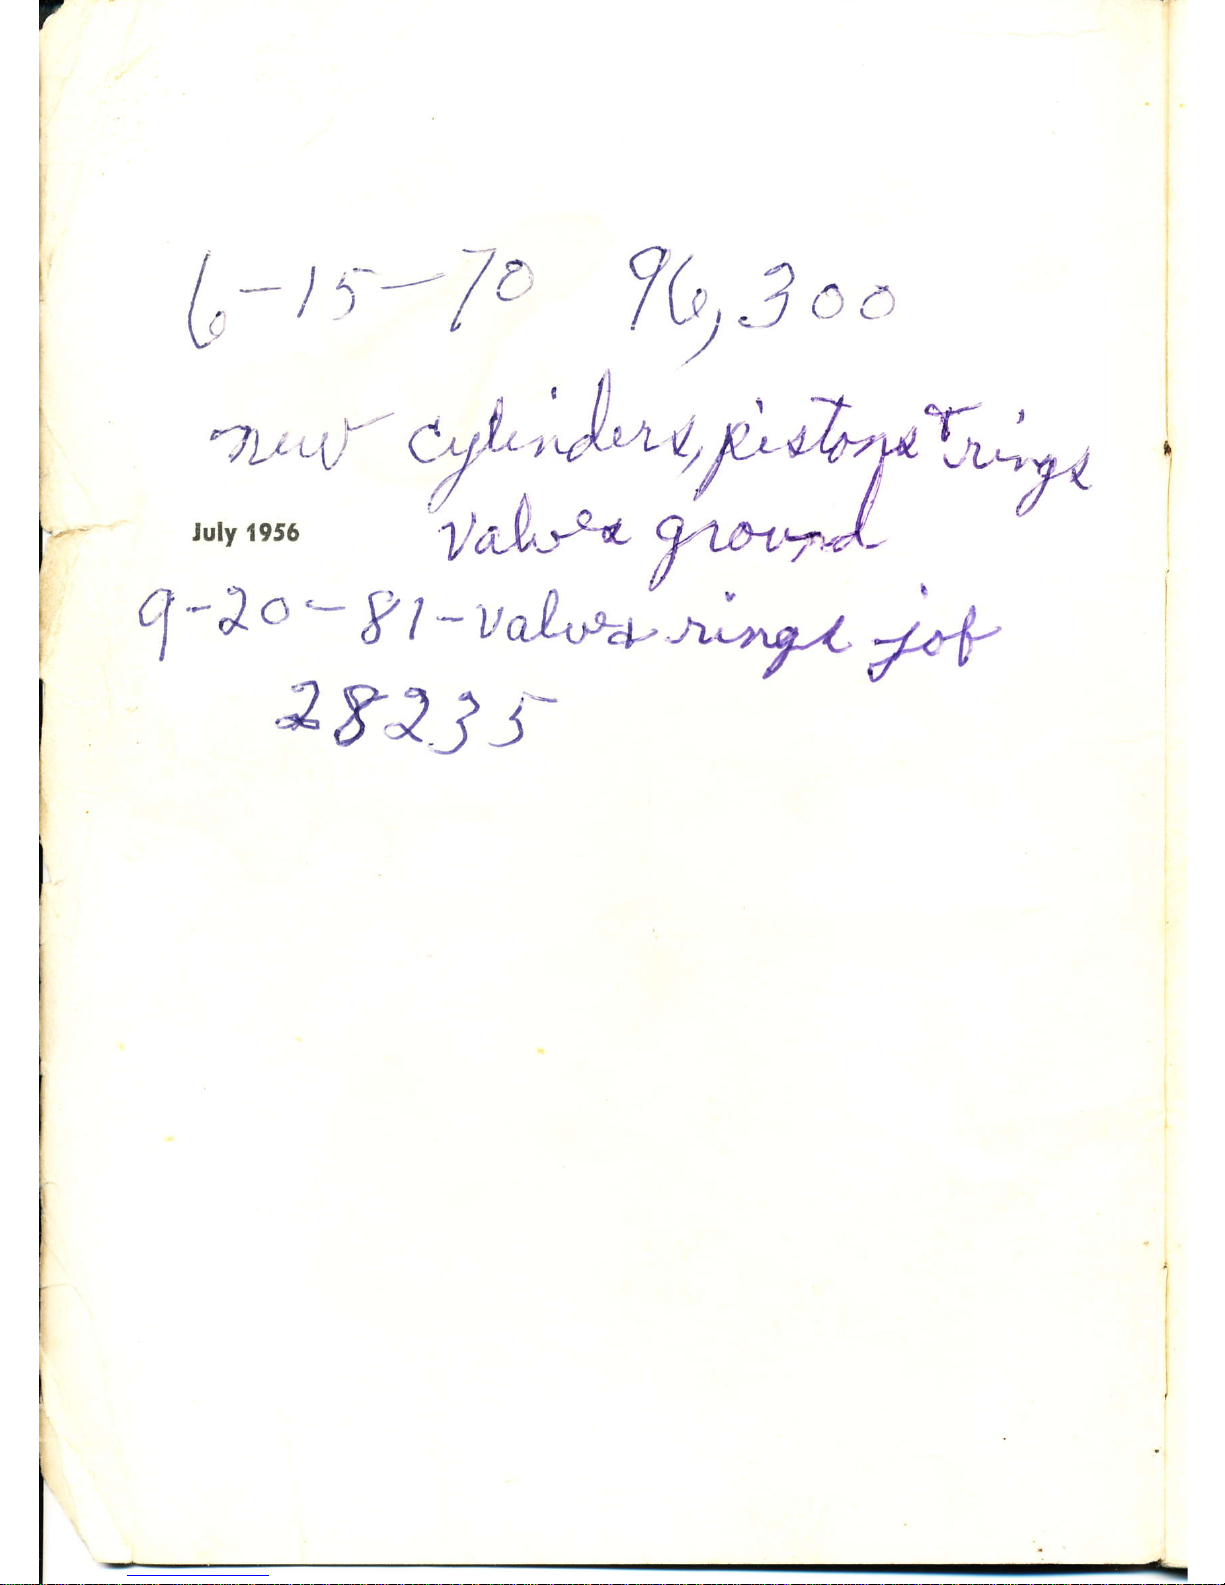 6-15-70 96,300
new cylinders, pistons & rings
valves ground
July 1956
9-20-81-valves rings job
28235